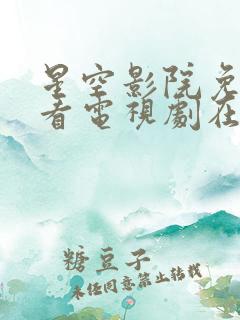 星空影院免
看電視劇在
糖豆子
未经同意禁止转载